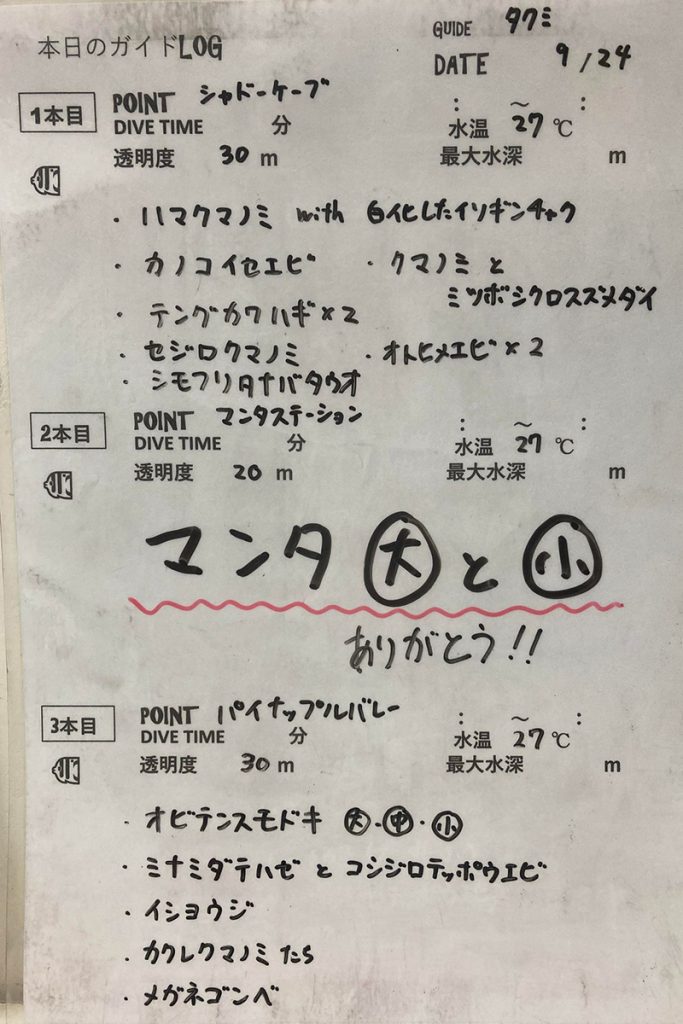 本日のガイドLOG
GUIDE タクミ
DATE 9/24
1本目 POINT シャドーケーブ : ～ :
DIVE TIME 分 水温 27℃
透明度 30 m 最大水深 m
・ハマクマノミ with 白化したイソギンチャク
・カノコイセエビ ・クマノミと
ミツボシクロスズメダイ
・テングカワハギ×2
・セジロクマノミ ・オトヒメエビ×2
・シモフリタナバタウオ
2本目 POINT マンタステーション : ～ :
DIVE TIME 分 水温 27℃
透明度 20 m 最大水深 m
マンタ 大 と 小
ありがとう!!
3本目 POINT パイナップルバレー : ～ :
DIVE TIME 分 水温 27℃
透明度 30 m 最大水深 m
・オビテンスモドキ 大・中・小
・ミナミダテハゼ と コシジロテッポウエビ
・イショウジ
・カクレクマノミたち
・メガネゴンベ